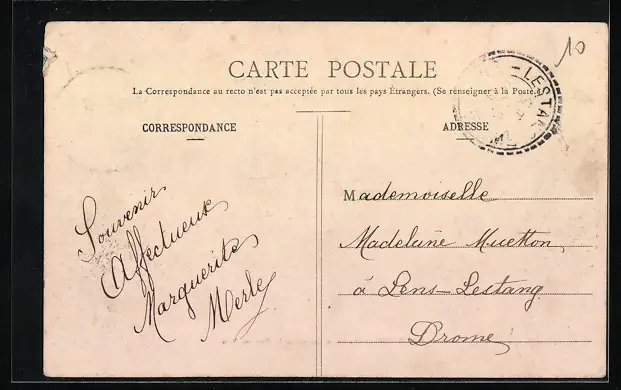 10
CARTE POSTALE
La Correspondance au recto n'est pas acceptée par tous les pays Étrangers. (Se renseigner à la Poste.)
CORRESPONDANCE
ADRESSE
-LESTANG
Souvenir
Affectueux
Marguerite
Merley
Mademoiselle
Madeleine Muetton
à Lens-Lestang
Drome